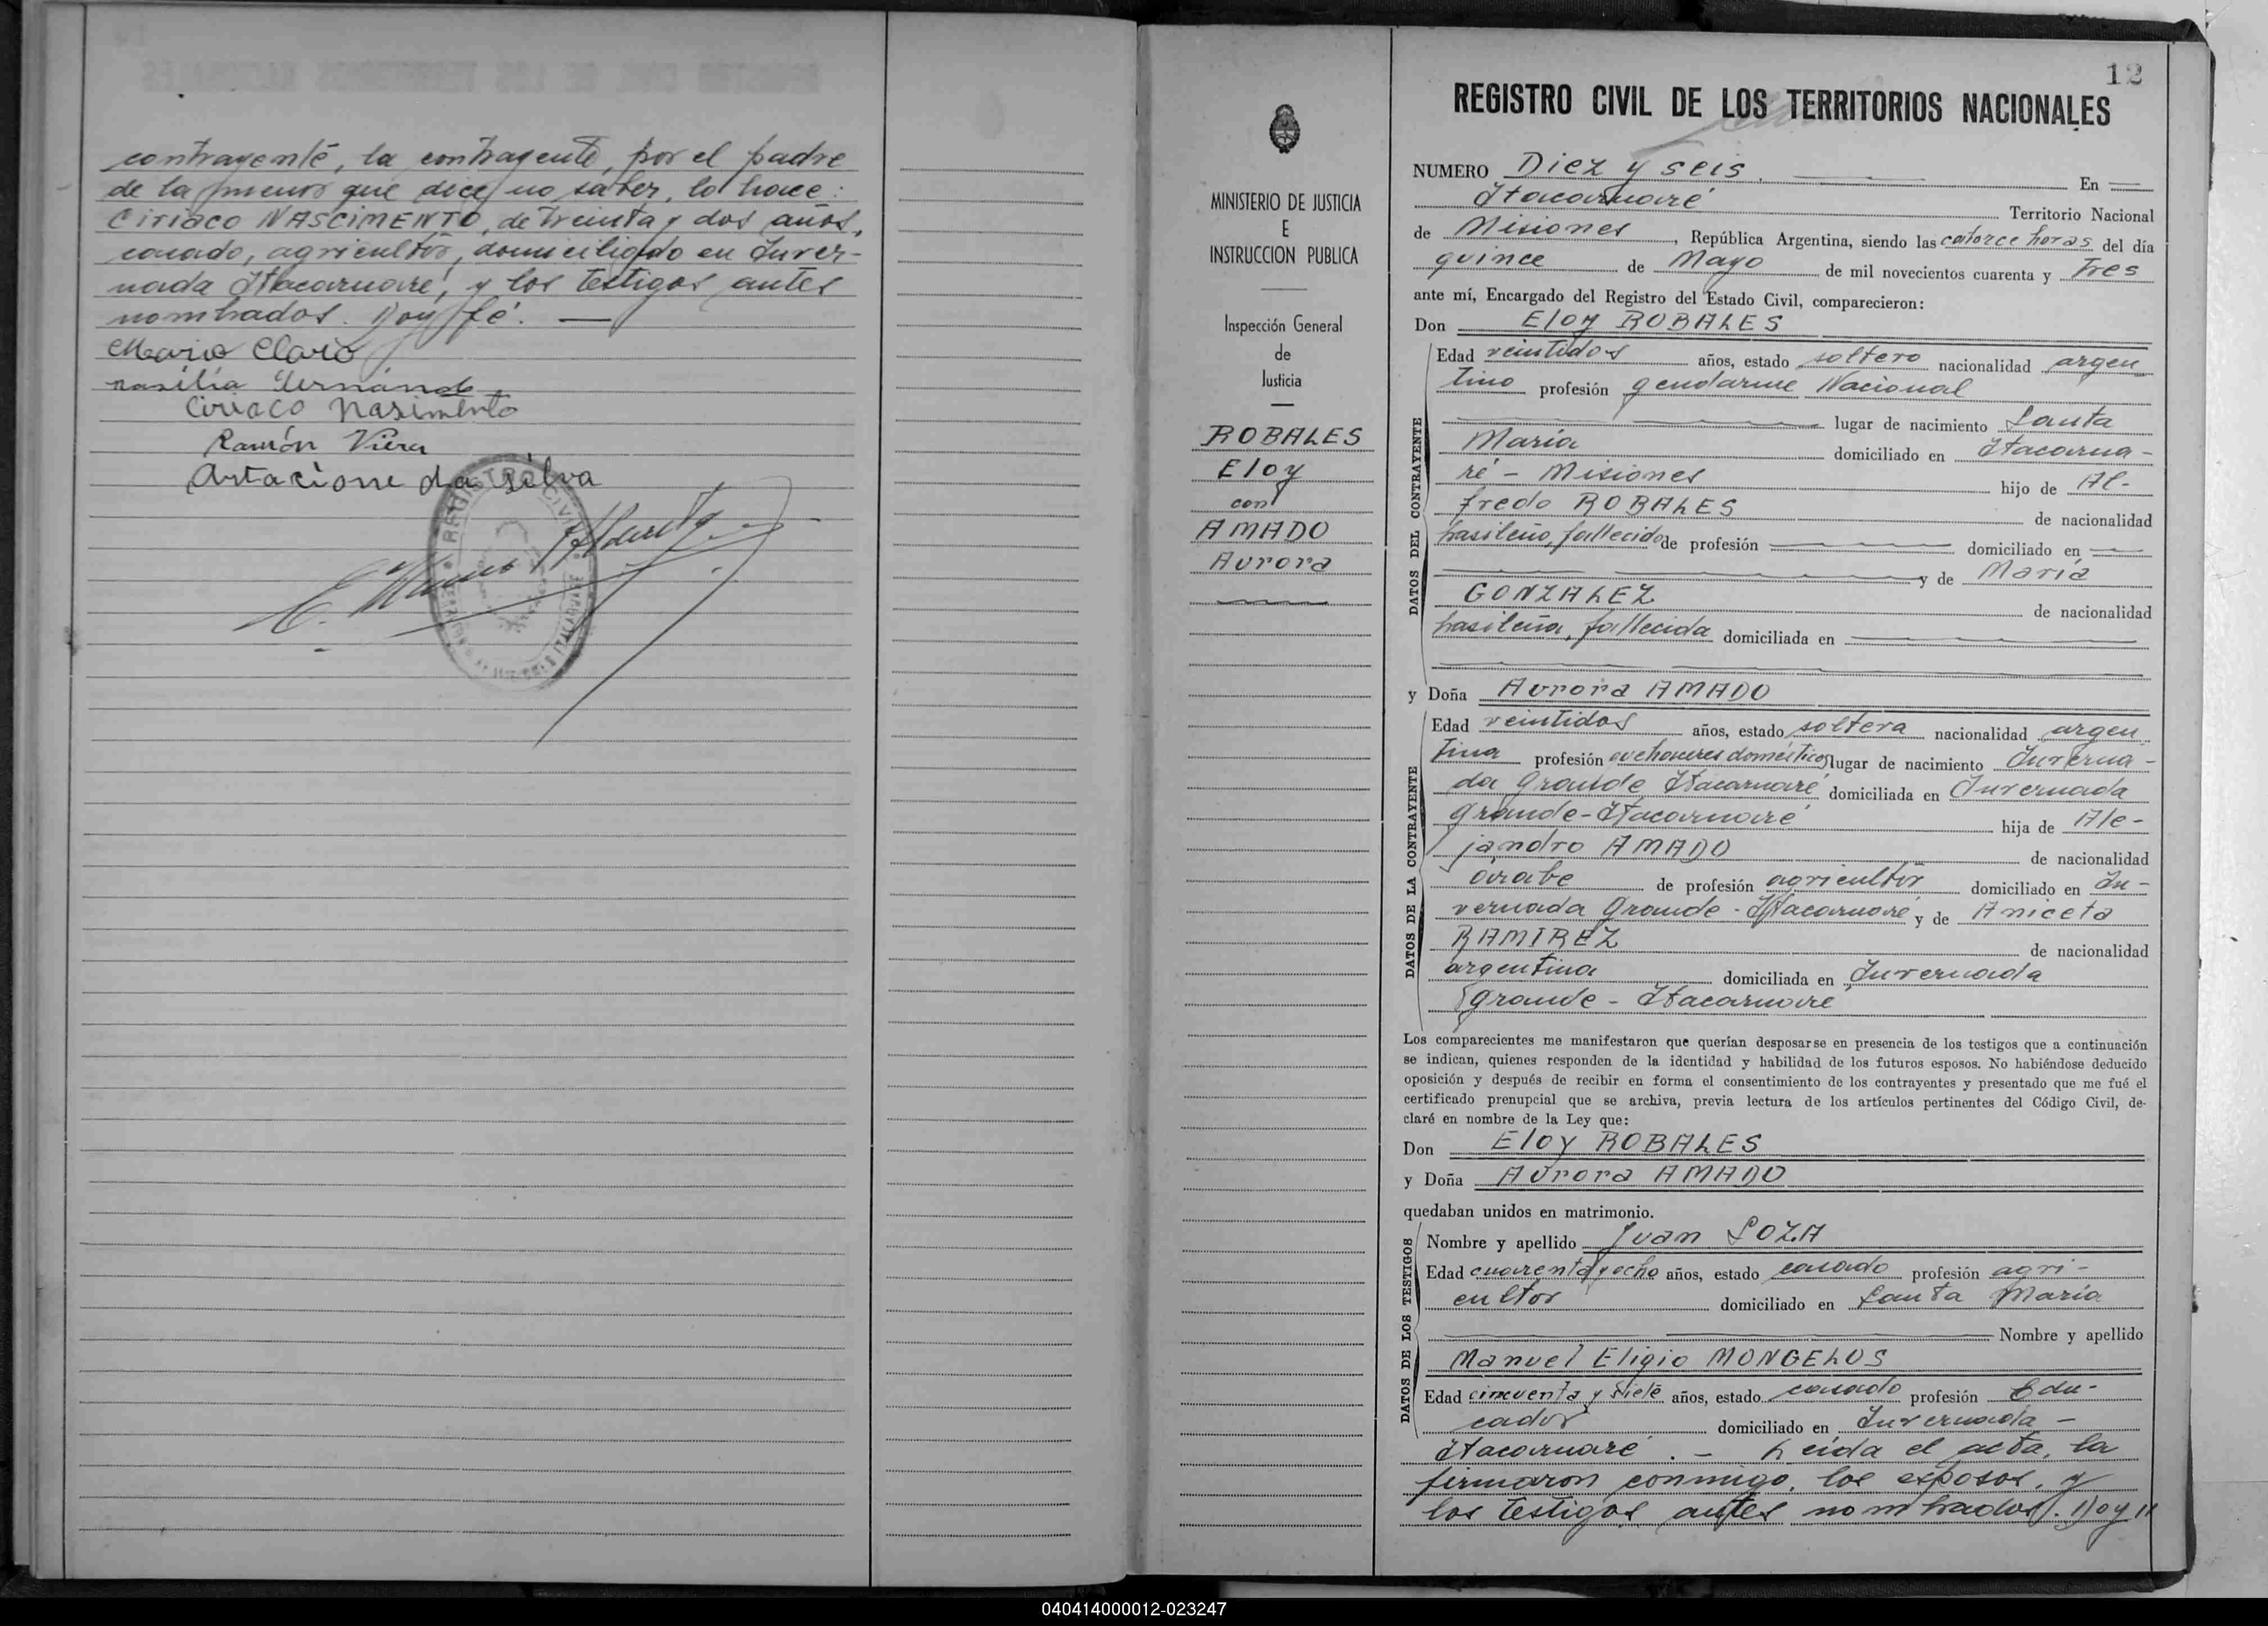 contrayente, la contrayente, por el padre
de la menor que dice no saber, lo hace:
Ciriaco NASCIMENTO, de treinta y dos años,
casado, agricultor, domiciliado en Inver-
nada Itacaruaré, y los testigos antes
nombrados. Doy fé. —
Mario Claro
Ciriaco Nasimento
Ramón Viera
da Silva
REGISTRO CIVIL
12
REGISTRO CIVIL DE LOS TERRITORIOS NACIONALES
MINISTERIO DE JUSTICIA
E
INSTRUCCION PUBLICA
Inspección General
de
Justicia
ROBALES
Eloy
con
AMADO
Aurora
NUMERO Diez y seis. En
Itacaruaré Territorio Nacional
de Misiones, República Argentina, siendo las catorce horas del día
quince de Mayo de mil novecientos cuarenta y tres
ante mí, Encargado del Registro del Estado Civil, comparecieron:
Don Eloy ROBALES
DATOS DEL CONTRAYENTE
Edad veintidos años, estado soltero nacionalidad argen
tino profesión gendarme Nacional
lugar de nacimiento Santa
María domiciliado en Itacarua-
ré - Misiones hijo de Al-
fredo ROBALES de nacionalidad
brasileño, fallecido de profesión domiciliado en
y de María
GONZALEZ de nacionalidad
brasileña, fallecida domiciliada en
y Doña Aurora AMADO
DATOS DE LA CONTRAYENTE
Edad veintidos años, estado soltera nacionalidad argen
tina profesión quehaceres domésticos lugar de nacimiento Inverna-
da Grande Itacaruaré domiciliada en Invernada
Grande-Itacaruaré hija de Ale-
jandro AMADO de nacionalidad
árabe de profesión agricultor domiciliado en In-
vernada Grande - Itacaruaré y de Aniceta
RAMIREZ de nacionalidad
argentina domiciliada en Invernada
Grande - Itacaruaré
Los comparecientes me manifestaron que querían desposarse en presencia de los testigos que a continuación
se indican, quienes responden de la identidad y habilidad de los futuros esposos. No habiéndose deducido
oposición y después de recibir en forma el consentimiento de los contrayentes y presentado que me fué el
certificado prenupcial que se archiva, previa lectura de los artículos pertinentes del Código Civil, de-
claré en nombre de la Ley que:
Don Eloy ROBALES
y Doña Aurora AMADO
quedaban unidos en matrimonio.
DATOS DE LOS TESTIGOS
Nombre y apellido Juan SOZA
Edad cuarenta y ocho años, estado casado profesión agri-
cultor domiciliado en Santa María
Nombre y apellido
Manuel Eligio MONGELOS
Edad cincuenta y siete años, estado casado profesión Edu-
cador domiciliado en Invernada -
Itacaruaré. - Leida el acta, la
firmaron conmigo, los esposos, y
los testigos antes nombrados. Doy
040414000012-023247